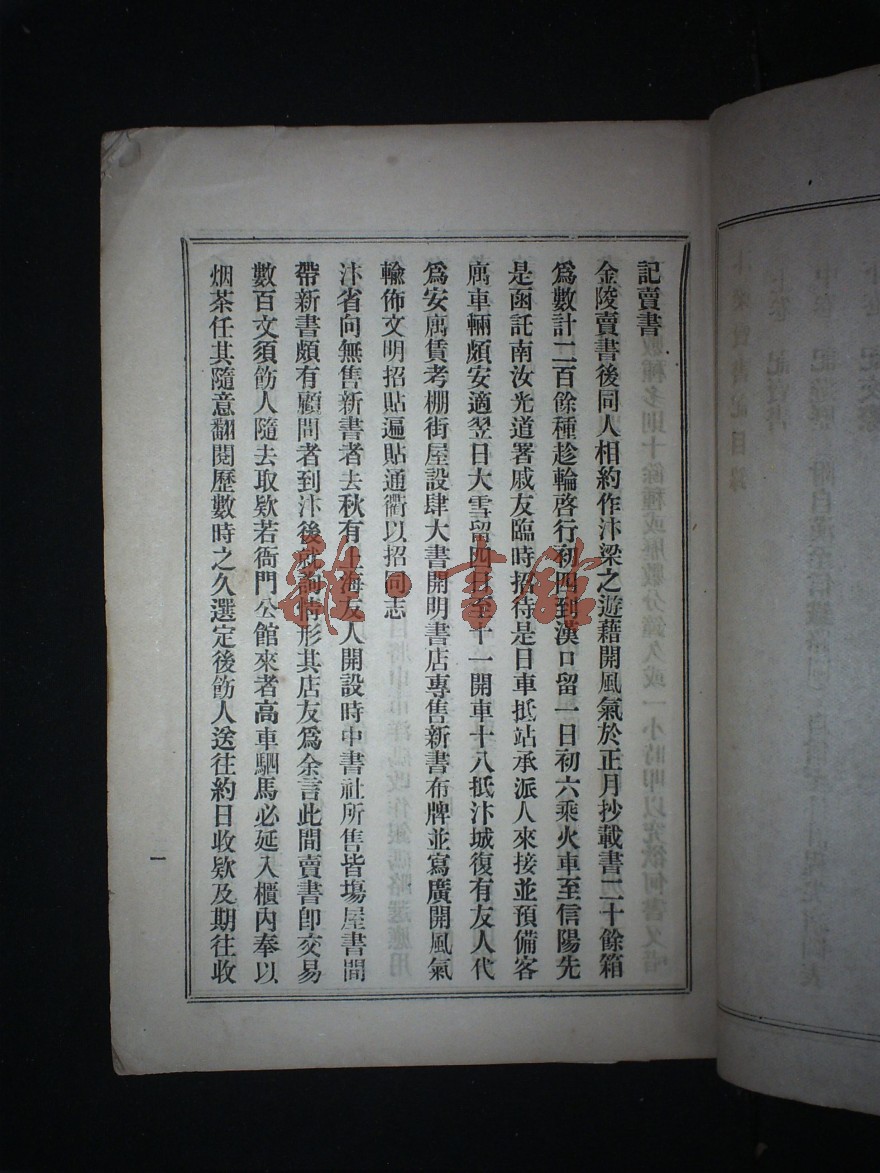 記賣書
金陵賣書後同人相約作汴梁之遊藉開風氣於正月抄載書二十餘箱
爲數計二百餘種趁輪啓行初四到漢口留一日初六乘火車至信陽先
是函託南汝光道署戚友臨時招待是日車抵站承派人來接並預備客
廎車輛頗安適翌日大雪留四日至十一開車十八抵汴城復有友人代
爲安厲賃考棚街屋設肆大書開明書店專售新書布牌並寫廣開風氣
輸佈文明招貼遍貼通衢以招同志
汴省向無售新書者去秋有上海友人開設時中書社所售皆塲屋書間
帶新書頗有顧問者到汴後就詢情形其店友爲余言此間賣書卽交易
數百文須飭人隨去取欵若衙門公館來者高車駟馬必延入櫃內奉以
烟茶任其隨意翻閱歷數時之久選定後飭人送往約日收欵及期往收
一